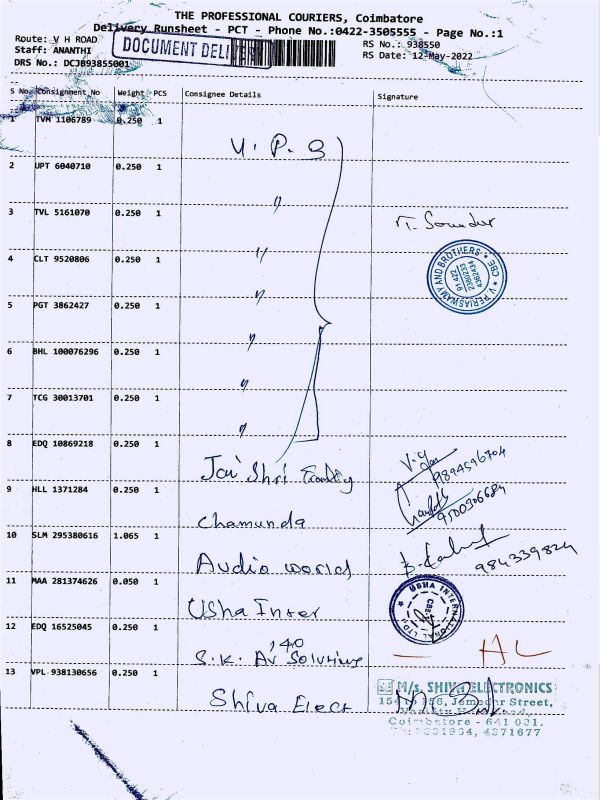 THE PROFESSIONAL COURIERS, Coimbatore
Delivery Runsheet - PCT - Phone No.:0422-3505555 - Page No.:1
Route: V H ROAD
Staff: ANANTHI
DRS No.: DCJ093855001
DOCUMENT DELI
RS No.: 938550
RS Date: 12-May-2022
S No. Consignment No Weight PCS Consignee Details Signature
1 TVM 1106789 0.250 1 V. P. S
2 UPT 6040710 0.250 1 "
3 TVL 5161070 0.250 1 "
4 CLT 9520806 0.250 1 "
5 PGT 3862427 0.250 1 "
6 BHL 100076296 0.250 1 "
7 TCG 30013701 0.250 1 "
V PERIASWAMY AND BROTHERS * CBE *
8 EDQ 10869218 0.250 1 Jai Shri
9 HLL 1371284 0.250 1 Chamunda
10 SLM 295380616 1.065 1 Audio world
11 MAA 281374626 0.050 1 Usha Inter
USHA INTERNATIONAL LTD.
12 EDQ 16525045 0.250 1 S.K. AV Solutions
13 VPL 938130656 0.250 1 Shiva Elect
M/s. SHIVA ELECTRONICS
Coimbatore - 641 001.